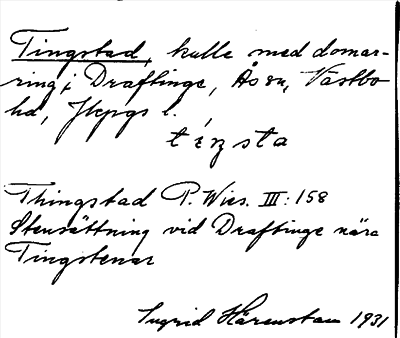 Tingstad, kulle med domar-
ring i Draftinge, Ås sn, Västbo
hd, Jkpgs l.
tíŋsta
Thingstad P. Wies. III: 158
Stensättning vid Draftinge nära
Tingstenar
Ingrid Hårenstam 1931